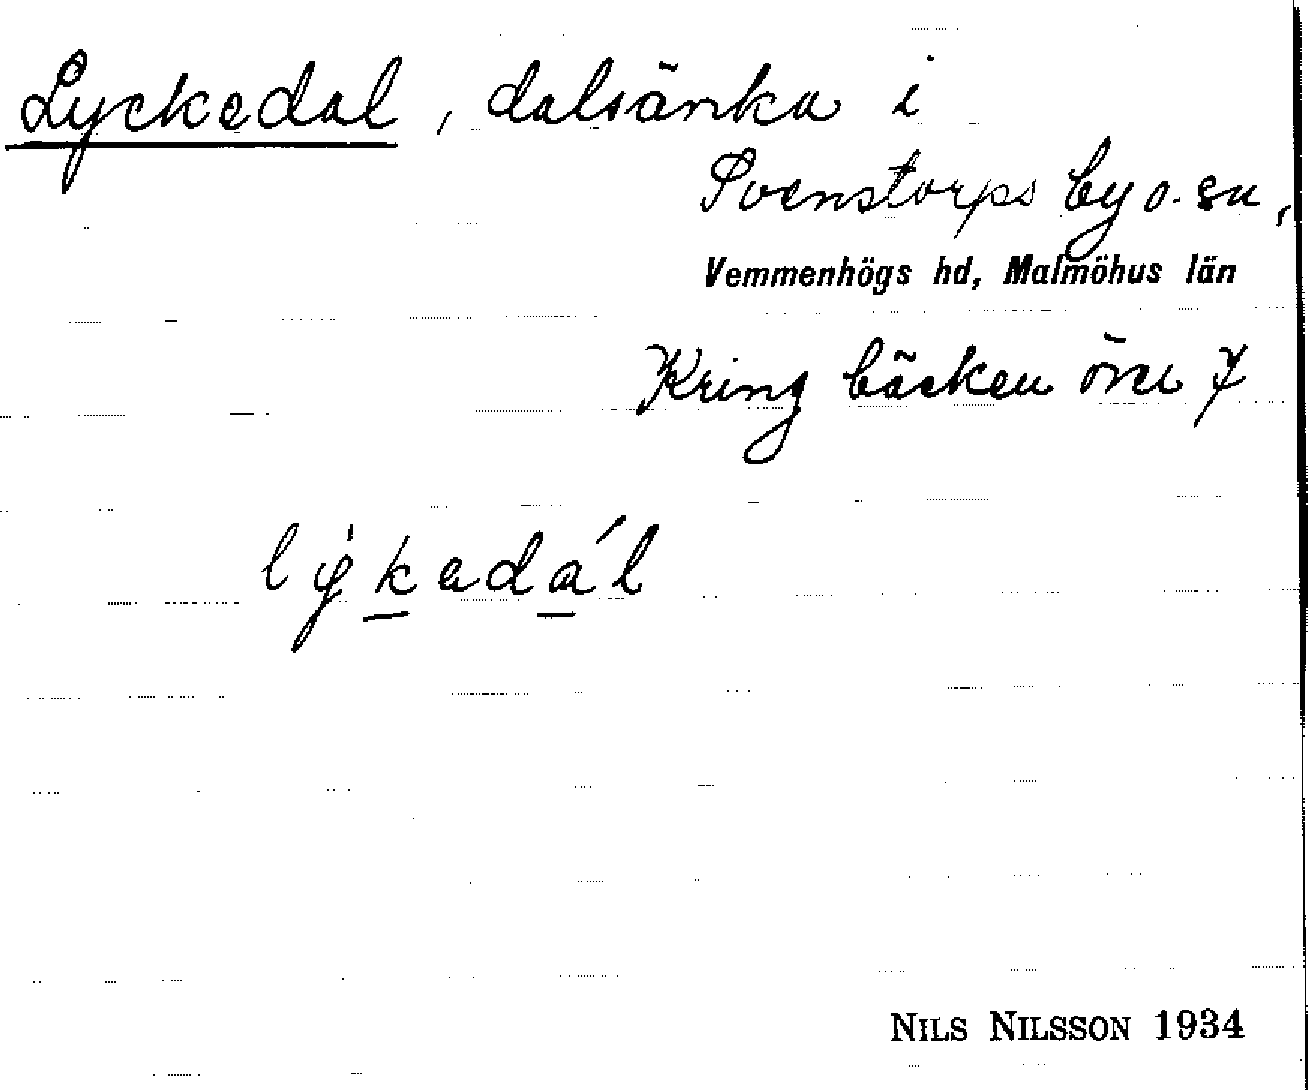 Lyckedal, dalsänka i
Svenstorps by o. sn,
Vemmenhögs hd, Malmöhus län
Kring bäcken över 7
lýkedál
NILS NILSSON 1934